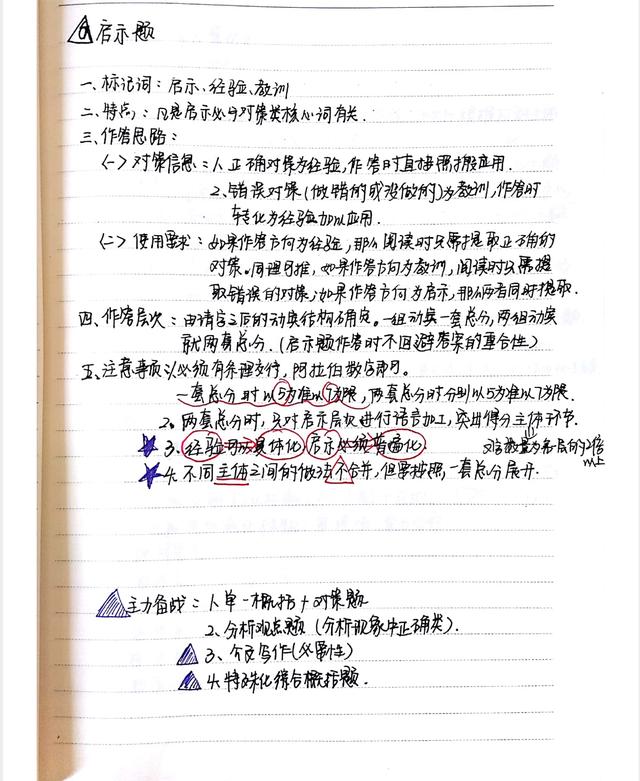 ⑥启示题
一、标记词：启示、经验、教训
二、特点：凡是启示必与对策类核心词有关.
三、作答思路：
(一) 对策信息：1、正确对策为经验,作答时直接照搬应用.
2、错误对策(做错的或没做的)为教训,作答时
转化为经验加以应用.
(二) 使用要求：如果作答方向为经验,那么阅读时只需提取正确的
对策。同理可推,如果作答方向为教训,阅读时只需提
取错误的对策;如果作答方向为启示,那么两者同时提取.
四、作答层次：由请字之后的动宾结构确定。一组动宾一套总分,两组动宾
就两套总分.(启示题作答时不回避答案的重合性)
五、注意事项:1、必须有条理支行,阿拉伯数字即可。
一套总分时以5为准以7为限,两套总分时分别以5为准以7为限.
2。两套总分时,只对启示层次进行语言加工,突出得分主体环节.
3.经验可以具体化 启示必须普遍化
对策数量为各层的1/2
以上
4.不同主体之间的做法不合并,但要按照一套总分展开.
主力备战：1、单一概括+对策题
2、分析观点题 (分析现象中正确类).
3、公文写作(必要性)
4、特殊化综合概括题.